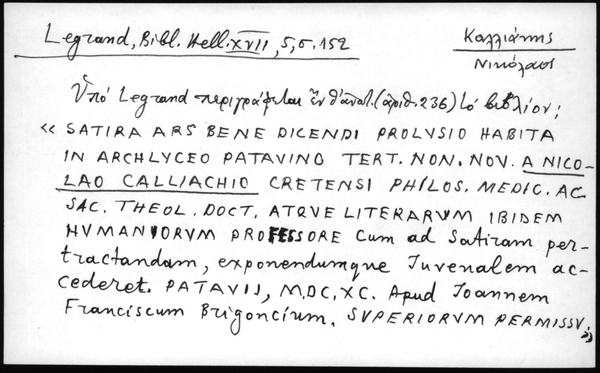 Legrand, Bibl. Hell. XVII, 5, σ. 152
Καλλιάκης
Νικόλαος
Ὑπό Legrand περιγράφεται (ἀριθ. 236) τό βιβλίον:
« SATIRA ARS BENE DICENDI PROLVSIO HABITA
IN ARCHLYCEO PATAVINO TERT. NON. NOV. A NICO-
LAO CALLIACHIO CRETENSI PHILOS. MEDIC. AC
SAC. THEOL. DOCT. ATQVE LITERARVM IBIDEM
HVMANIORVM PROFESSORE Cum ad Satiram per-
tractandam, exponendumque Iuvenalem ac-
cederet. PATAVIJ, M.DC.XC. Apud Ioannem
Franciscum Brigoncium. SVPERIORVM PERMISSV. »